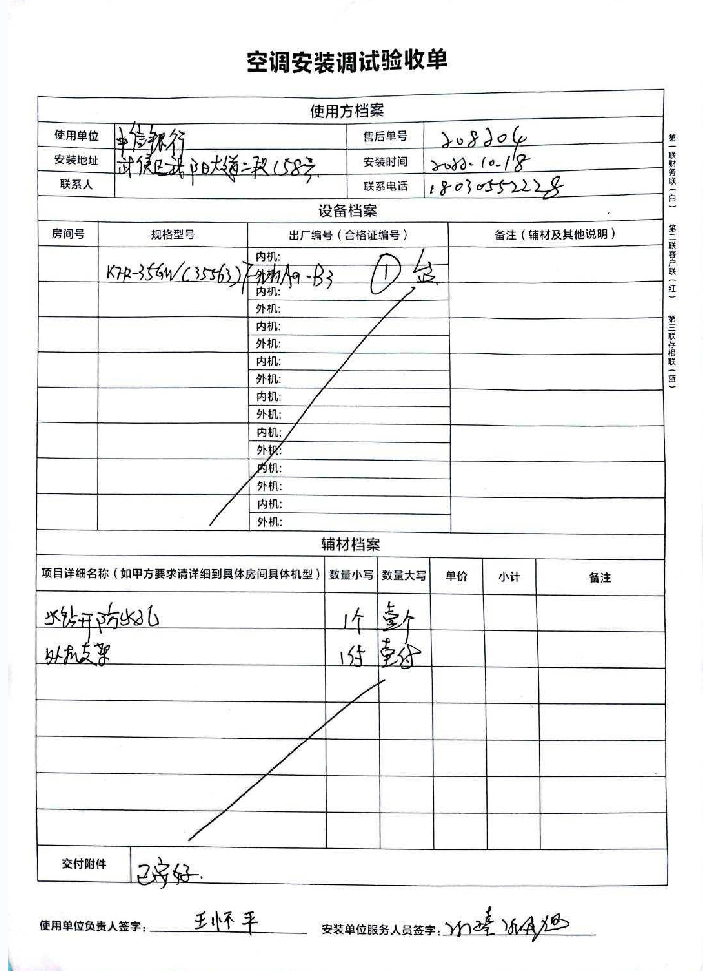 空调安装调试验收单
使用方档案
使用单位 中信银行 售后单号 208204
安装地址 武侯区 大道二段158号 安装时间 2022.10.18
联系人 联系电话 18030552228
设备档案
房间号 规格型号 出厂编号（合格证编号） 备注（辅材及其他说明）
内机:
KFR-35GW/(35563) 外机: A9-B3 ① 台
内机:
外机:
内机:
外机:
内机:
外机:
内机:
外机:
内机:
外机:
内机:
外机:
内机:
外机:
辅材档案
项目详细名称（如甲方要求请详细到具体房间具体机型） 数量小写 数量大写 单价 小计 备注
水钻开防水孔 1个 壹个
外机支架 1付 壹付
交付附件 已安好.
使用单位负责人签字: 王怀平 安装单位服务人员签字:
第一联财务联（白）
第二联客户联（红）
第三联存根联（蓝）